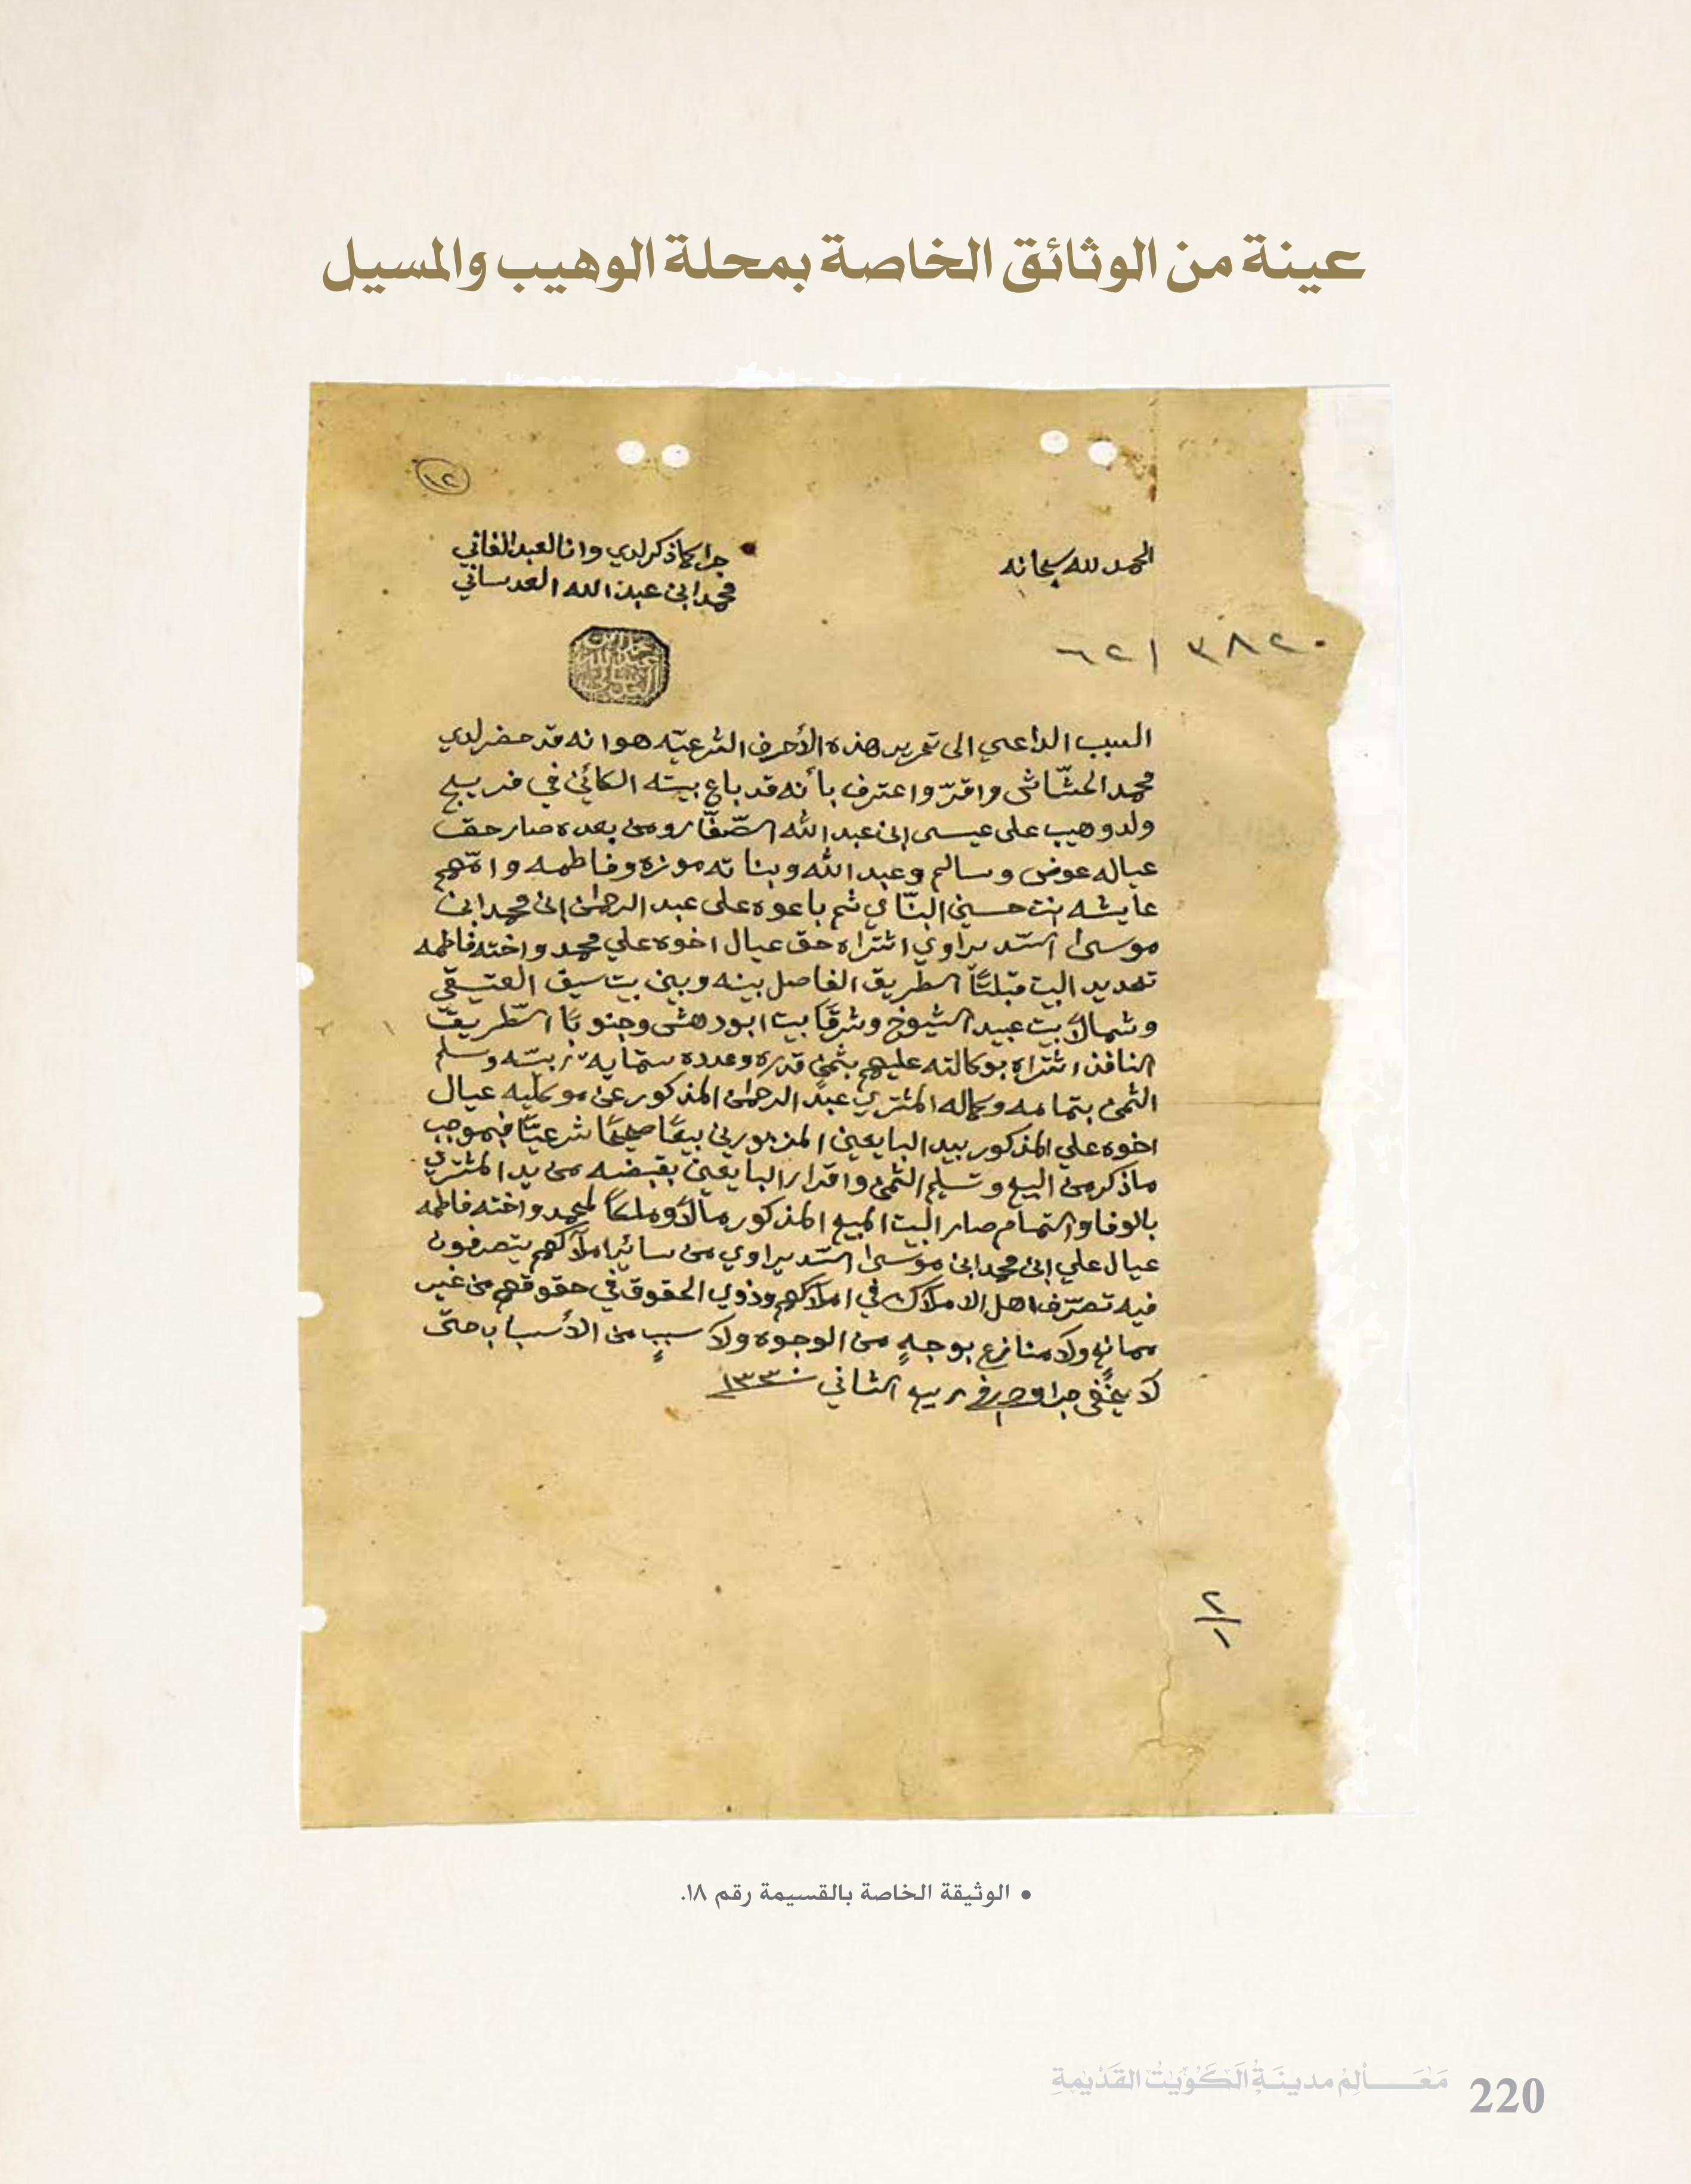 عينة من الوثائق الخاصة بمحلة الوهيب والمسيل
١٢
الحمد لله سبحانه
جرا كما ذكر لدي وانا العبد الفاني
محمد ابن عبد الله العدساني
محمد ابن عبد الله العدساني
السبب الداعي الى تحرير هذه الأحرف الشرعيّه هو انه قد حضر لدي
محمد الحشّاش واقرّ واعترف بأنه قد باع بيته الكائن في فريج
ولد وهيب على عيسى ابن عبد الله الصّفّار ومن بعده صار حق
عياله عوض وسالم وعبد الله وبناته موزه وفاطمه وامّهم
عايشه بنت حسين البنّاي ثم باعوه على عبد الرحمٰن ابن محمد ابن
موسىٰ السّديراوي اشتراه حق عيال اخوه علي محمد واخته فاطمه
تحديد البيت قبلتًا الطريق الفاصل بينه وبين بيت سيق العتيقي
وشمالًا بيت عبيد الشيوخ وشرقًا بيت ابودهش وجنوبًا الطّريق
النافذ اشتراه بوكالته عليهم بثمن قدره وعدده ستمايه ربيّه وسلم
الثمن بتمامه وكماله المشتري عبد الرحمٰن المذكور عن موكليه عيال
اخوه علي المذكور بيد البايعين المزبورين بيعًا صحيحًا شرعيًّا فبموجب
ماذكر من البيع وتسليم الثمن واقرار البايعين بقبضه من يد المشتري
بالوفا والتمام صار البيت المبيع المذكور مالًا وملكًا لمحمد واخته فاطمه
عيال علي ابن محمد ابن موسىٰ السّديراوي من سائر املاكهم يتصرفون
فيه تصرّف اهل الاملاك في املاكهم وذوي الحقوق في حقوقهم من غير
ممانعٍ ولا منازعٍ بوجهٍ من الوجوه ولا سببٍ من الأسباب حتّى
لا يخفى جرا وحرر في ربيع الثاني ١٣٣٠
٢
١
• الوثيقة الخاصة بالقسيمة رقم ١٨.
مَعَـالِمُ مدينَـةُ الكُوَيْتْ القَدْيمةِ
220